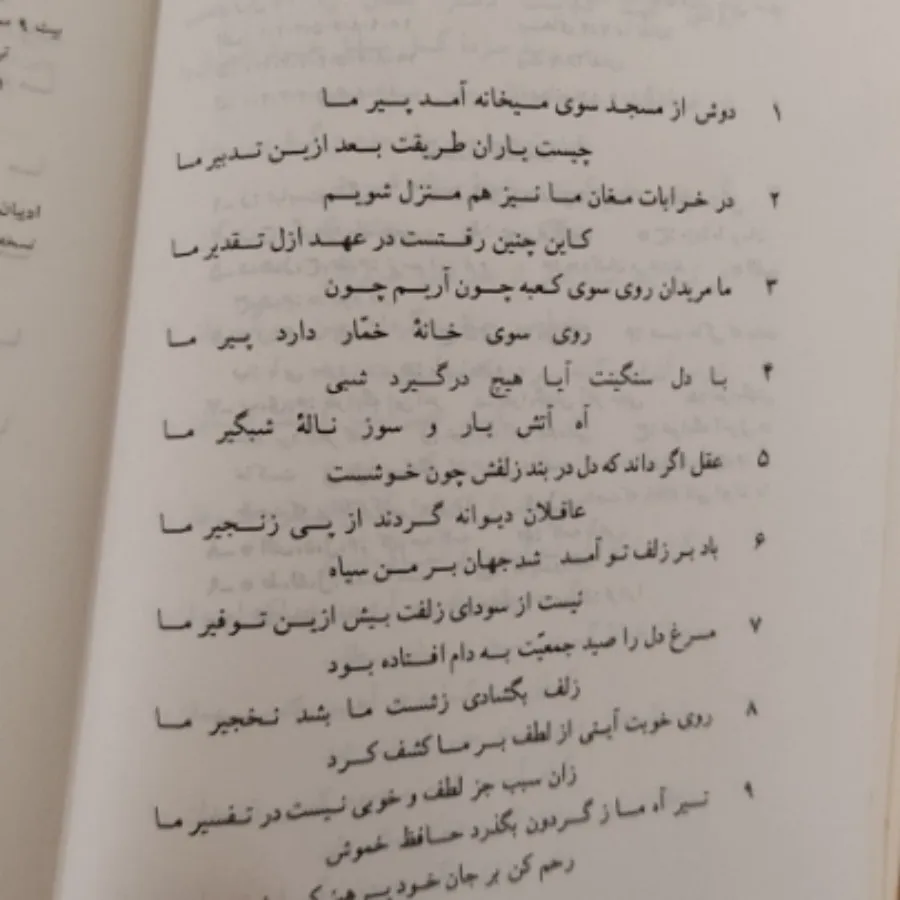 ۱ دوش از مسجد سوی میخانه آمد پیر ما
چیست یاران طریقت بعد ازین تدبیر ما
۲ در خرابات مغان ما نیز هم منزل شویم
کاین چنین رفتست در عهد ازل تقدیر ما
۳ ما مریدان روی سوی کعبه چون آریم چون
روی سوی خانهٔ خمّار دارد پیر ما
۴ با دل سنگینت آیا هیچ درگیرد شبی
آه آتش بار و سوز نالهٔ شبگیر ما
۵ عقل اگر داند که دل در بند زلفش چون خوشست
عاقلان دیوانه گردند از پی زنجیر ما
۶ باد بر زلف تو آمد شد جهان بر من سیاه
نیست از سودای زلفت بیش ازین توفیر ما
۷ مرغ دل را صید جمعیّت به دام افتاده بود
زلف بگشادی زشست ما بشد نخجیر ما
۸ روی خوبت آیتی از لطف بر ما کشف کرد
زان سبب جز لطف و خوبی نیست در تفسیر ما
۹ تیر آه ما ز گردون بگذرد حافظ خموش
رحم کن بر جان خود
بیت ۹
ادیان